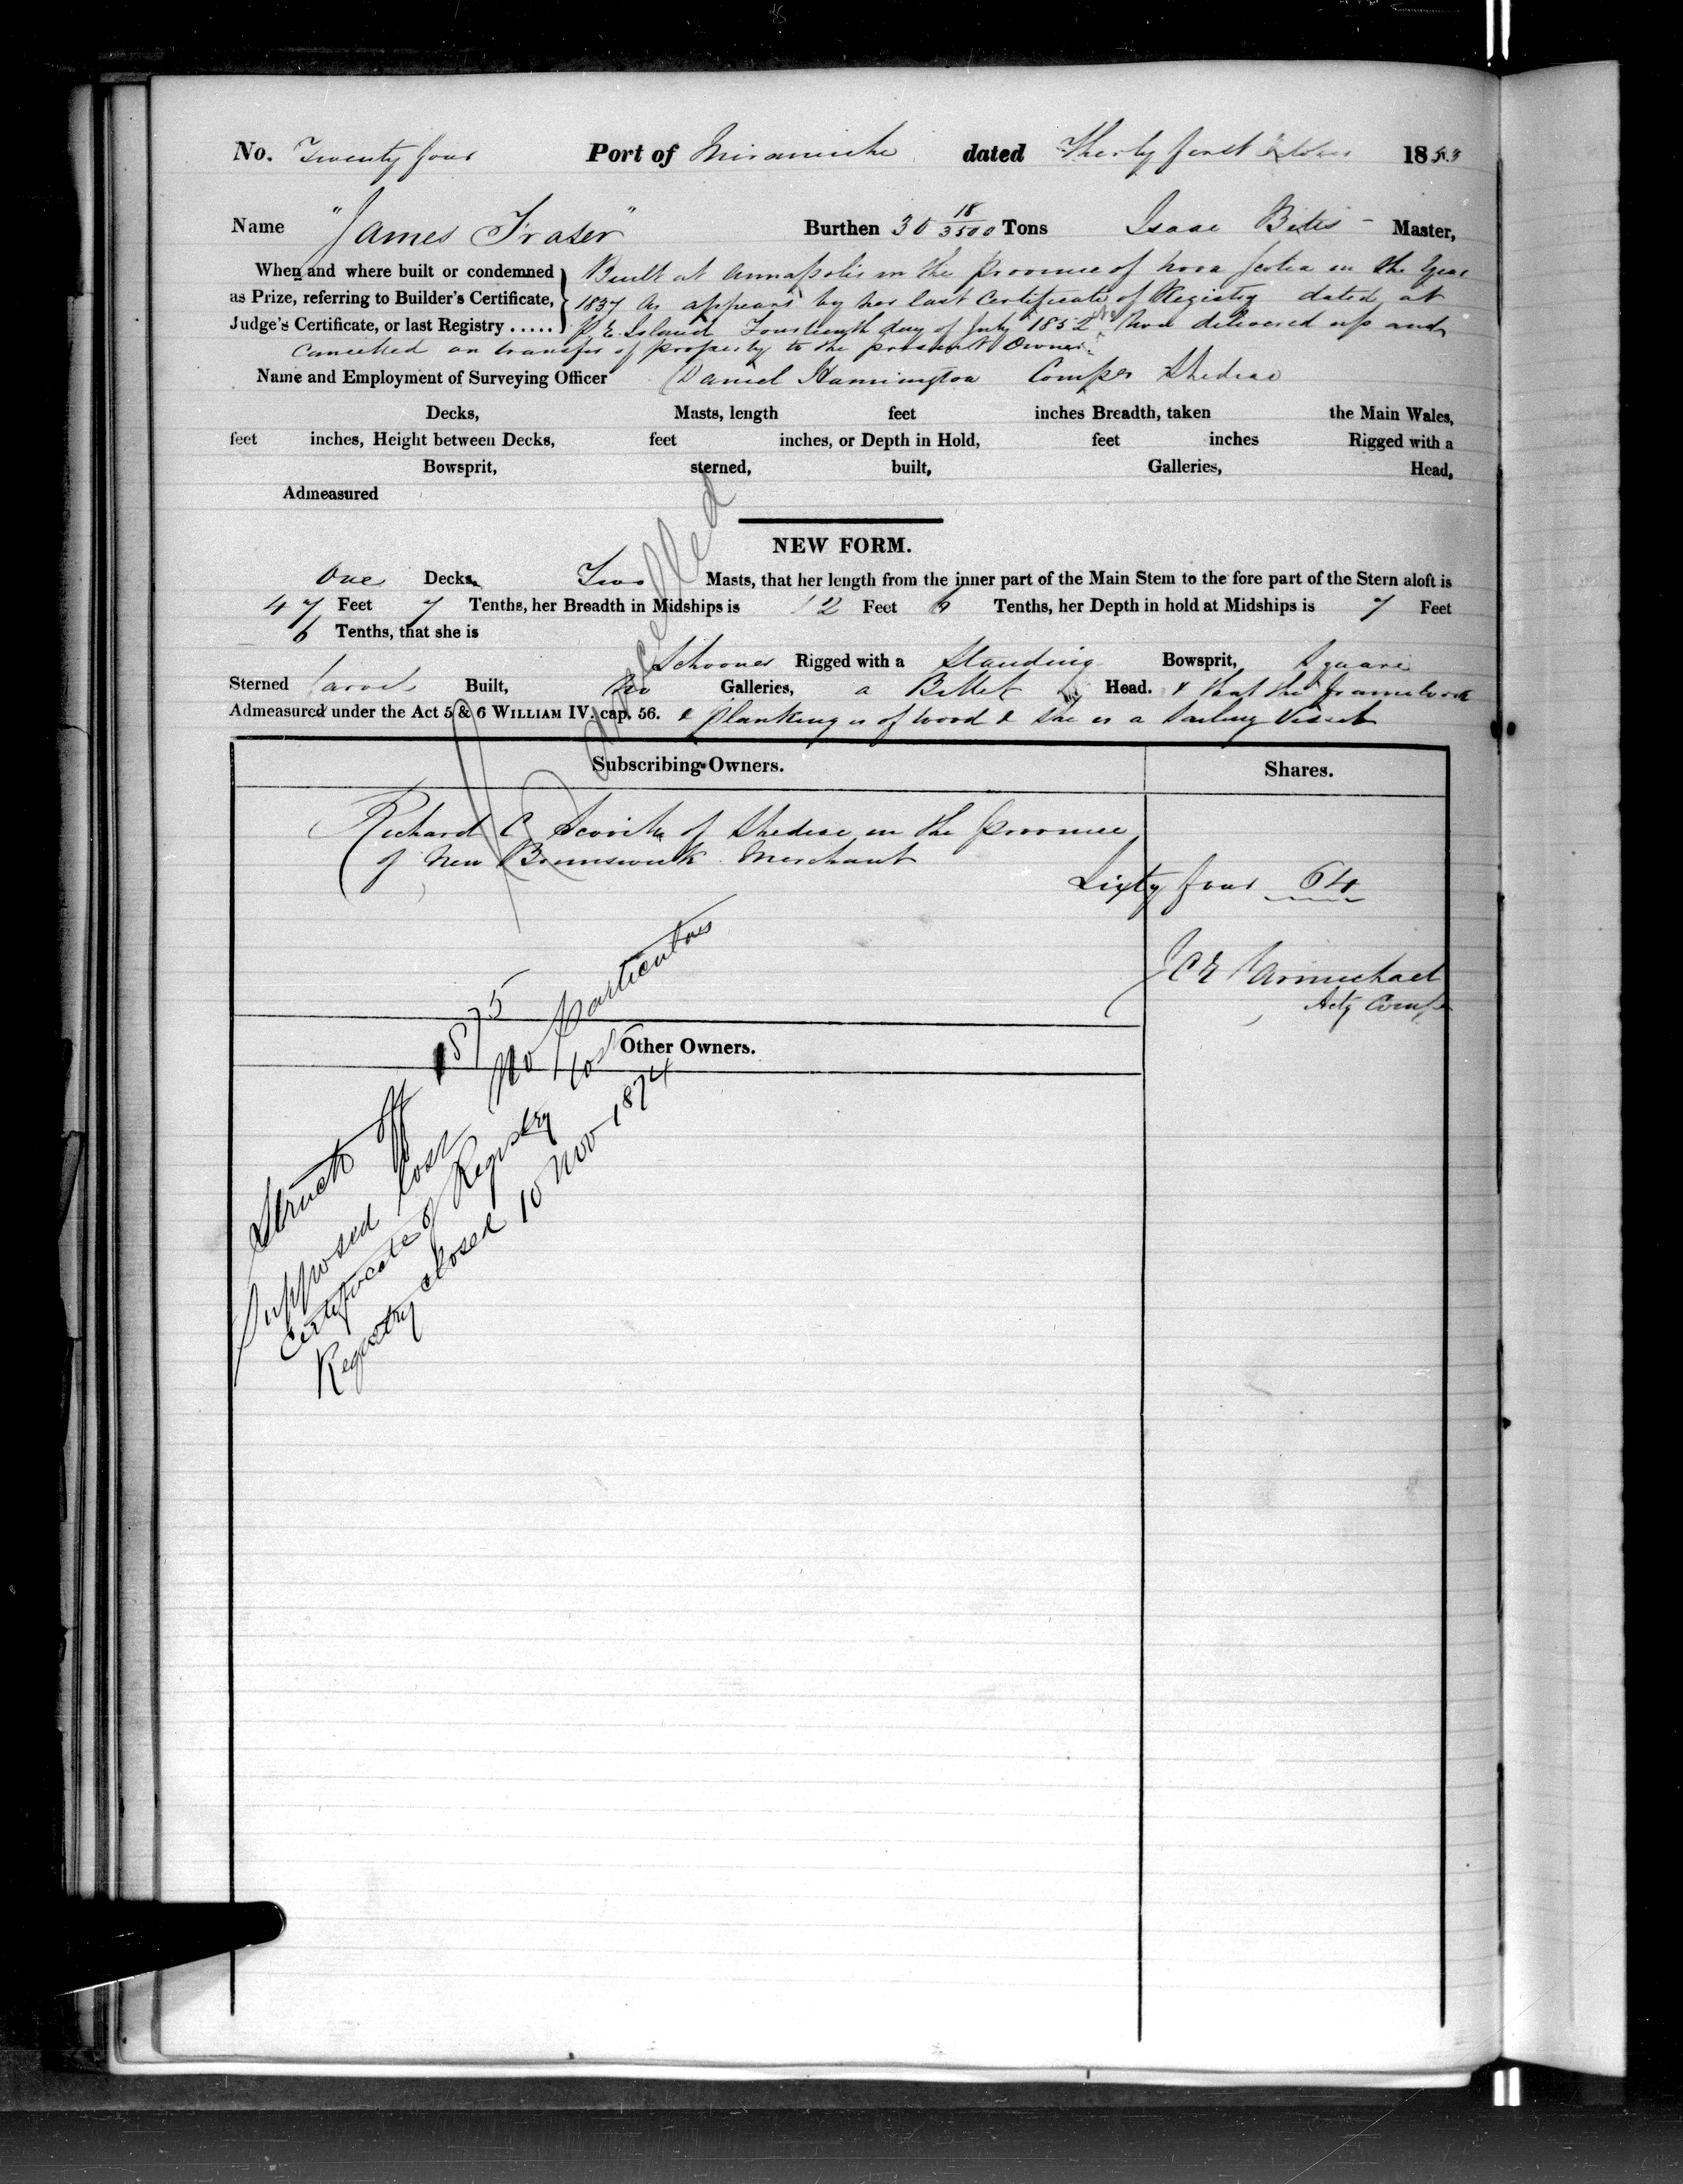 No. Twenty four Port of Miramichi dated Thirty first October 1853
Name "James Fraser" Burthen 30 18/3500 Tons Isaac Master,
When and where built or condemned Built at Annapolis in the Province of Nova Scotia in the Year
as Prize, referring to Builder's Certificate, 1837 As appears by her last Certificate of Registry dated at
Judge's Certificate, or last Registry ..... P. E. Island Fourteenth day of July 1852 Now delivered up and
Cancelled on transfer of property to the present Owner
Name and Employment of Surveying Officer Daniel Hannington Compr Shediac
Decks, Masts, length feet inches Breadth, taken the Main Wales,
feet inches, Height between Decks, feet inches, or Depth in Hold, feet inches Rigged with a
Bowsprit, sterned, built, Galleries, Head,
Admeasured
NEW FORM.
One Decks, Two Masts, that her length from the inner part of the Main Stem to the fore part of the Stern aloft is
47 Feet 7 Tenths, her Breadth in Midships is 12 Feet Tenths, her Depth in hold at Midships is 7 Feet
6 Tenths, that she is
Schooner Rigged with a Standing Bowsprit, Square
Sterned Carvel Built, No Galleries, a Billet Head. & that the framework
Admeasured under the Act 5 & 6 WILLIAM IV. cap. 56. & planking is of wood & she is a Sailing Vessel
Cancelled
Subscribing Owners. Shares.
Richard C Scovil of Shediac in the Province
of New Brunswick Merchant
Sixty four 64
J C E Carmichael
Actg Comp
Other Owners.
Struck off 1875
Supposed lost No particulars
Certificate of Registry lost
Registry closed 10 Nov 1874